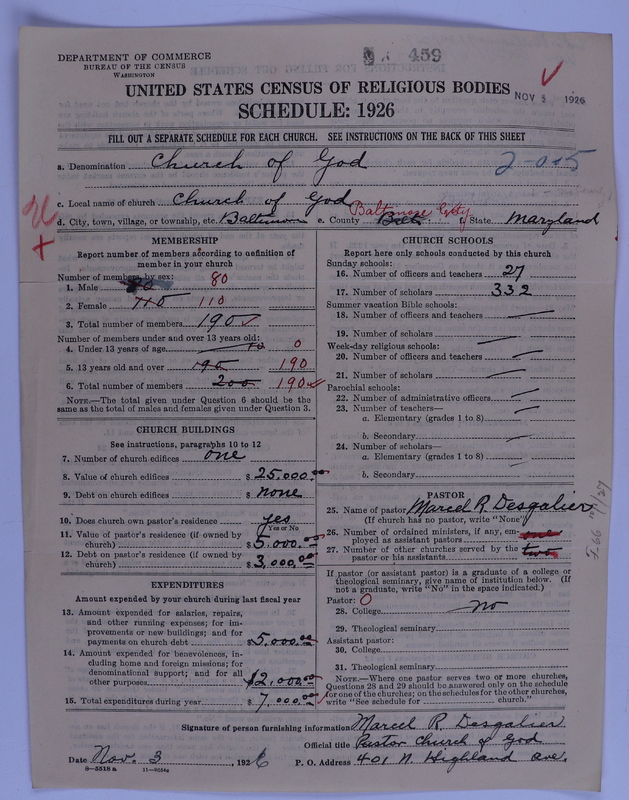 DEPARTMENT OF COMMERCE
BUREAU OF THE CENSUS
WASHINGTON
459
UNITED STATES CENSUS OF RELIGIOUS BODIES
NOV 5 1926
SCHEDULE: 1926
FILL OUT A SEPARATE SCHEDULE FOR EACH CHURCH. SEE INSTRUCTIONS ON THE BACK OF THIS SHEET
a. Denomination Church of God 2-0-5
c. Local name of church Church of God
d. City, town, village, or township, etc. Baltimore e. County Balt. Baltimore City f. State Maryland
MEMBERSHIP
Report number of members according to definition of
member in your church
Number of members by sex:
1. Male 80 80
2. Female 110 110
3. Total number of members 190
Number of members under and over 13 years of age:
4. Under 13 years of age 10 0
5. 13 years old and over 190 190
6. Total number of members 200 190
NOTE.—The total given under Question 6 should be the
same as the total of males and females given under Question 3.
CHURCH BUILDINGS
See instructions, paragraphs 10 to 12
7. Number of church edifices one
8. Value of church edifices $ 25,000.00
9. Debt on church edifices $ none
10. Does church own pastor's residence yes
Yes or No
11. Value of pastor's residence (if owned by
church) $ 5,000.00
12. Debt on pastor's residence (if owned by
church) $ 3,000.00
EXPENDITURES
Amount expended by your church during last fiscal year
13. Amount expended for salaries, repairs,
and other running expenses; for im-
provements or new buildings; and for
payments on church debt $ 5,000.00
14. Amount expended for benevolences, in-
cluding home and foreign missions; for
denominational support; and for all
other purposes $ 2,000.00
15. Total expenditures during year $ 7,000.00
CHURCH SCHOOLS
Report here only schools conducted by this church
Sunday schools:
16. Number of officers and teachers 27
17. Number of scholars 332
Summer vacation Bible schools:
18. Number of officers and teachers
19. Number of scholars
Week-day religious schools:
20. Number of officers and teachers
21. Number of scholars
Parochial schools:
22. Number of administrative officers
23. Number of teachers—
a. Elementary (grades 1 to 8)
b. Secondary
24. Number of scholars—
a. Elementary (grades 1 to 8)
b. Secondary
PASTOR
25. Name of pastor Marcel R. Desgalier
(If church has no pastor, write "None")
26. Number of ordained ministers, if any, em-
ployed as assistant pastors one
27. Number of other churches served by the
pastor or his assistants two
If pastor (or assistant pastor) is a graduate of a college or
theological seminary, give name of institution below. (If
not a graduate, write "No" in the space indicated.)
Pastor: 0
28. College No
29. Theological seminary
Assistant pastor:
30. College
31. Theological seminary
NOTE.—Where one pastor serves two or more churches,
Questions 28 and 29 should be answered only on the schedule
for one of the churches; on the schedules for the other churches,
write "See schedule for church."
Signature of person furnishing information Marcel R. Desgalier
Official title Pastor Church of God
Date Nov. 3, 1926 P. O. Address 401 N. Highland ave.
8-5518 a